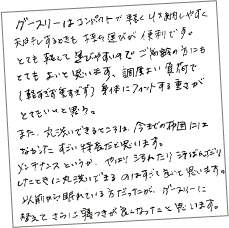 グースリーはコンパクトで軽く収納しやすく
天日干しするときも布団の運びが便利です。
とても軽くて運びやすいのでご高齢の方にも
とてもよいと思います。調度よい質何で
(軽すぎず重すぎず)身体にフィットする重さが
とてもいいと思う。
また、丸洗いできるところは、今までの布団には
なかったすごい特長だと思います。
メンテナンスというか、やはり汚れたり汗ばんだり
したときに丸洗いできるのはすごく良いと思います。
以前から眠れている方だったが、グースリーに
替えてさらに寝つきが良くなったと思います。